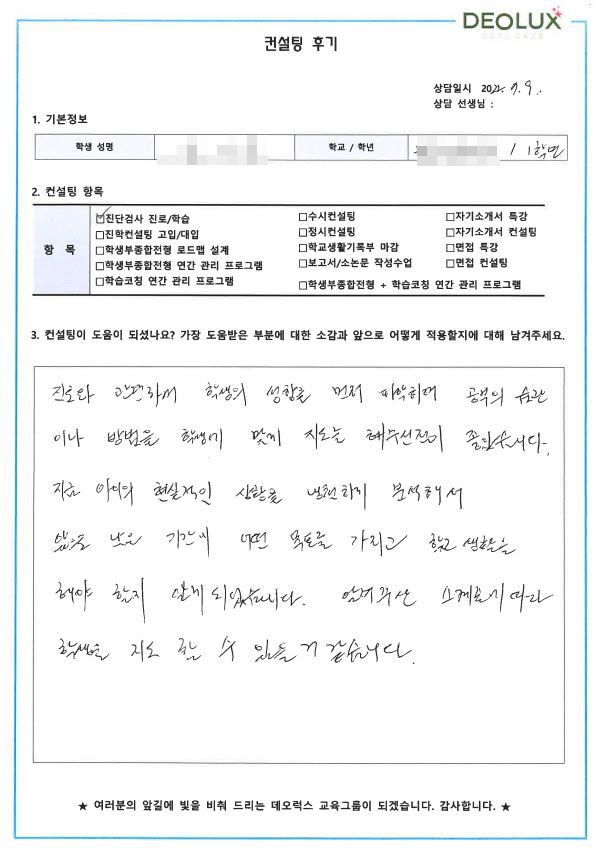 DEOLUX
데오럭스 교육그룹
컨설팅 후기
상담일시 2022. 9. 9.
상담 선생님 :
1. 기본정보
학생 성명 학교 / 학년 / 1학년
2. 컨설팅 항목
항 목
☑진단검사 진로/학습 □수시컨설팅 □자기소개서 특강
□진학컨설팅 고입/대입 □정시컨설팅 □자기소개서 컨설팅
□학생부종합전형 로드맵 설계 □학교생활기록부 마감 □면접 특강
□학생부종합전형 연간 관리 프로그램 □보고서/소논문 작성수업 □면접 컨설팅
□학습코칭 연간 관리 프로그램 □학생부종합전형 + 학습코칭 연간 관리 프로그램
3. 컨설팅이 도움이 되셨나요? 가장 도움받은 부분에 대한 소감과 앞으로 어떻게 적용할지에 대해 남겨주세요.
진로와 관련하여 학생의 성향을 먼저 파악하며 공부의 습관
이나 방법을 학생에 맞게 지도를 해주신점이 좋았습니다.
지금 아이의 현실적인 상황을 냉철하게 분석해서
앞으로 남은 기간에 어떤 목표를 가지고 학교 생활을
해야 할지 알게 되었습니다. 알려주신 스케줄에 따라
학생을 지도 할 수 있을거 같습니다.
★ 여러분의 앞길에 빛을 비춰 드리는 데오럭스 교육그룹이 되겠습니다. 감사합니다. ★